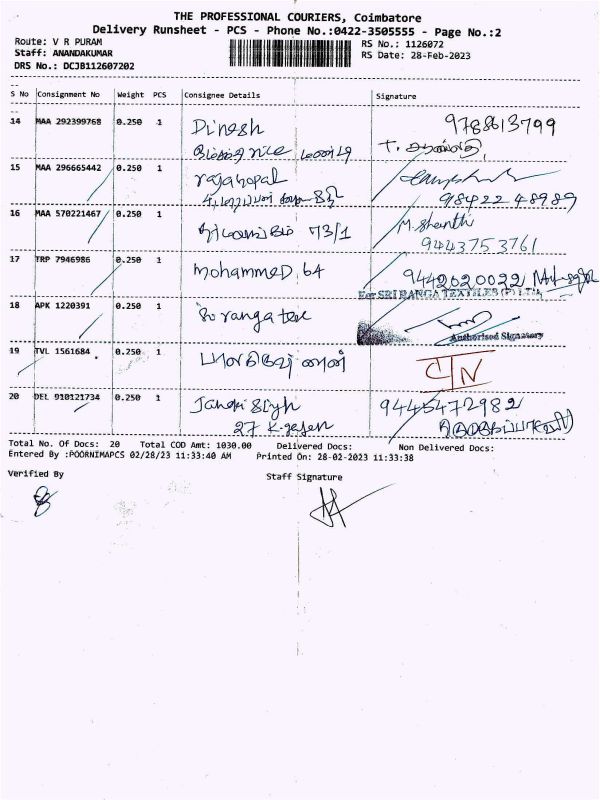 THE PROFESSIONAL COURIERS, Coimbatore
Delivery Runsheet - PCS - Phone No.:0422-3505555 - Page No.:2
Route: V R PURAM
RS No.: 1126072
Staff: ANANDAKUMAR
RS Date: 28-Feb-2023
DRS No.: DCJB112607202
S No Consignment No Weight PCS Consignee Details Signature
14 MAA 292399768 0.250 1 Dinesh 9788613799
15 MAA 296665442 0.250 1 rajagopal
98422 48989
16 MAA 570221467 0.250 1 73/1 M. Shanthi
9443753761
17 TRP 7946986 0.250 1 mohammed, 64 9442020022
For SRI RANGA TEXTILES (P) LTD.,
18 APK 1220391 0.250 1 Sri ranga tex
Authorised Signatory
19 TVL 1561684 0.250 1
20 DEL 910121734 0.250 1 9445472982
27
Total No. Of Docs: 20 Total COD Amt: 1030.00 Delivered Docs: Non Delivered Docs:
Entered By :POORNIMAPCS 02/28/23 11:33:40 AM Printed On: 28-02-2023 11:33:38
Verified By
Staff Signature